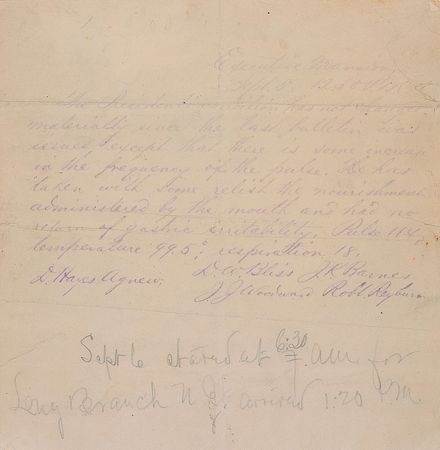 Executive Mansion
Sept. 5.
The President's condition has not changed
materially since the last bulletin was
issued, except that there is some increase
in the frequency of the pulse. He has
taken with some relish the nourishment
administered by the mouth and had no
return of gastric irritability. Pulse 114,
temperature 99.5°, respiration 18.
D. Hayes Agnew, D. W. Bliss J. K. Barnes
J. J. Woodward Robt. Reyburn
Sept 6 started at 6:30 AM for
Long Branch N.J. arrived 1:20 P.M.